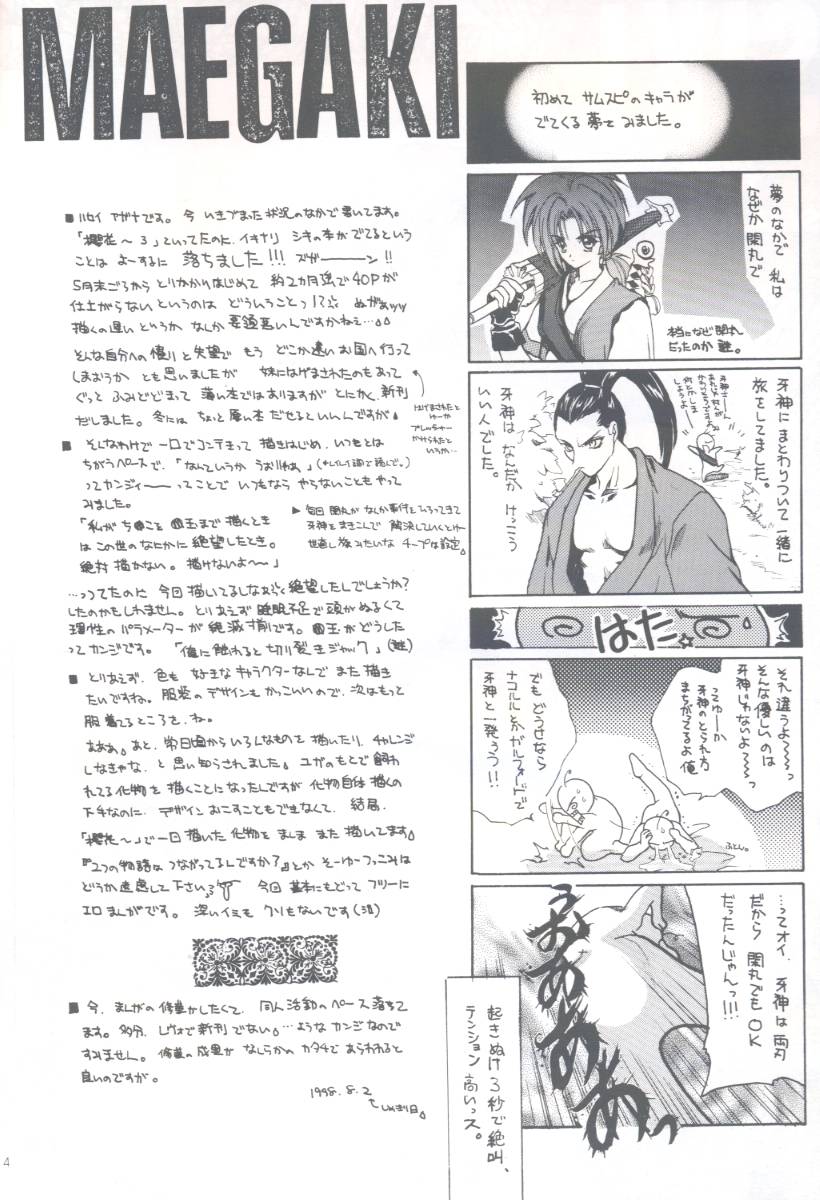 MAEGAKI
今 いきづまった状況のなかで書いてます。
「櫻花～3」といってたのに、イキナリ シキの本がでてるという
ことは よーするに 落ちました!!! ズガーーーン!!
5月末ごろから とりかかりはじめて 約2カ月強で 40Pが
仕上がらない というのは どういうことっ!?
描くの遅い どりょうか なんか 要領悪いんですかねえ…
そんな自分への憤りと失望で もう どこか遠いお国へ行って
しまおうか とも思いましたが 妹にはげまされたのもあって
ぐっと ふみとどまって 薄い本ではありますが とにかく、新刊
だしました。冬には ちょっと 厚い本 だせるといいんですが
はげまされたと
ゆーか
プレッシャー
かけられたと
いうか…
そんなわけで 一日でコンテきって 描きはじめ、いつもとは
ちがうペースで、「なんていうか うおりゃあ」
ってカンジィーー ってことで いつもなら やらないことも やって
みました。
▶ 毎回 閑丸が なんか事件を ひろってきて
牙神をまきこんで 解決していくとゆー
世直し旅みたいな チープな設定。
「私が ち●こと ●玉まで 描くとき
は この世のなにかに 絶望したとき。
絶対 描かない。描けないよ～～」
…ってたのに 今回 描いてるし なあ 絶望したんでしょうか?
したのかもしれません。とりあえず 睡眠不足で 頭が ぬるくて
理性の パラメーターが 絶滅寸前です。●玉が どうした
ってカンジです。「俺に触れると 切り裂きジャック」(謎)
とりあえず、色も 好きなキャラクターなんで また 描き
たいですね。服装のデザインも かっこいいので、次はもっと
服着てるところを、ね。
あああ。あと、常日頃から いろんなものを 描いたり、チャレンジ
しなきゃな、と 思い知らされました。ユガのもとで 飼わ
れてる化物を 描くことに なったんですが 化物自体 描くの
下手なのに、デザイン おこすことも できなくて、結局
「櫻花～」で一回 描いた 化物を まんま また 描いてます。
『2つの物語は つながってるんですか?』とか そーゆーつっこみは
どうか 遠慮して 下さい 今回 基本にもどって フツーに
エロまんがです。深いイミも クソもないです(泣)
今、まんがの 修業がしたくて、同人活動のペース 落ちて
ます。多分、レヴォで 新刊 でない。…ような カンジなので
すみません。修業の成果が なんらかの カタチで あらわれると
良いのですが。
1998.8.2
しめきり日。
初めて サムスピの キャラが
でてくる 夢を みました。
夢の なかで 私は
なぜか 閑丸で
本当になぜ 閑丸
だったのか 謎。
牙神に まとわりついて 一緒に
旅をしてました。
牙神は なんだか けっこう
いい人でした。
はたっ☆
それ違うよ～～～っ
そんな優しいのは
牙神じゃないよ～～っ
ってゆーか
牙神の とられ方
まちがってるよ 俺
でも どうせなら
ナコルルとか ガルフォードで
牙神と 一発ろう!!
ふとん。
…ってオイ、牙神は 両刃
だから 閑丸でもOK
だったんじゃんっ!!!
うおああああぁっ
起きぬけ 3秒で 絶叫、
テンション 高いっス。
4